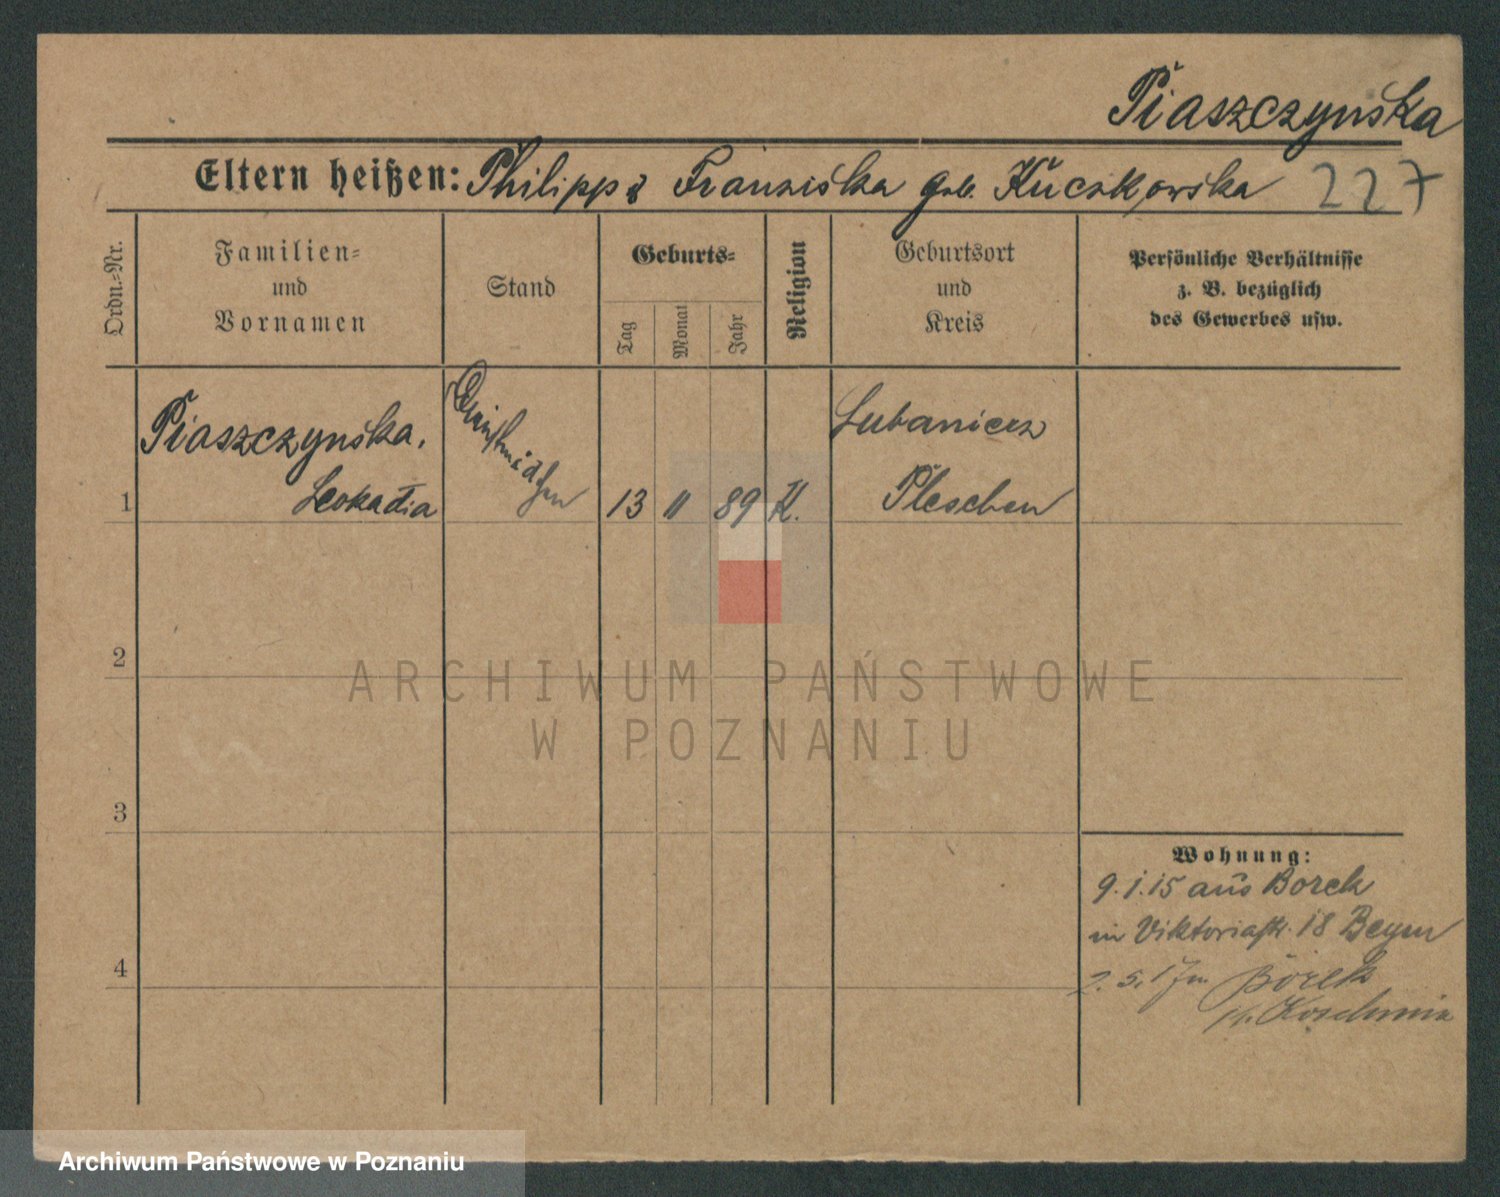 Piaszczynska
Eltern heißen: Philipp & Franziska geb. Kuczkowska 227
Ordn.-Nr.
Familien-
und
Vornamen
Stand
Geburts-
Tag
Monat
Jahr
Religion
Geburtsort
und
Kreis
Persönliche Verhältnisse
z. B. bezüglich
des Gewerbes usw.
Piaszczynska,
1 Leokadia
Dienstmädchen
13 11 89 K.
Lubanierz
Pleschen
2
3
4
Wohnung:
9.1.15 aus Borek
in Viktoriastr. 18 Beyer
2.5.17 n. Borek
Kr. Koschmin
ARCHIWUM PAŃSTWOWE
W POZNANIU
Archiwum Państwowe w Poznaniu